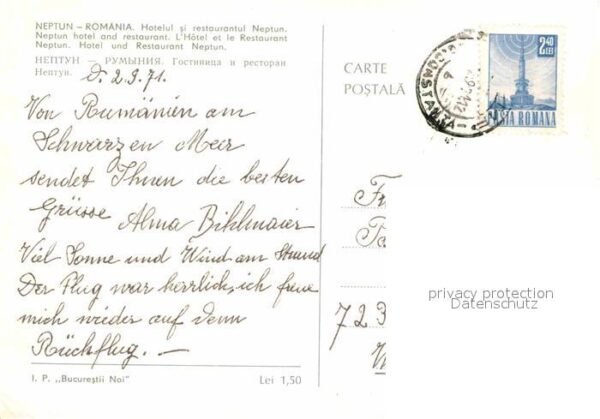 NEPTUN – ROMÂNIA. Hotelul şi restaurantul Neptun.
Neptun hotel and restaurant. L'Hôtel et le Restaurant
Neptun. Hotel und Restaurant Neptun.
НЕПТУН — РУМЫНИЯ. Гостиница и ресторан
Нептун.
D. 2.9.71.
Von Rumänien am
Schwarzen Meer
sendet Ihnen die besten
Grüsse Alma Bihlmaier
Viel Sonne und Wind am Strand
Der Flug war herrlich, ich freue
mich wieder auf denn
Rückflug. —
I. P. „Bucureştii Noi"
Lei 1,50
CARTE
POŞTALĂ
CONSTANŢA
2,40
LEI
POSTA ROMANA
Fr
723
privacy protection
Datenschutz